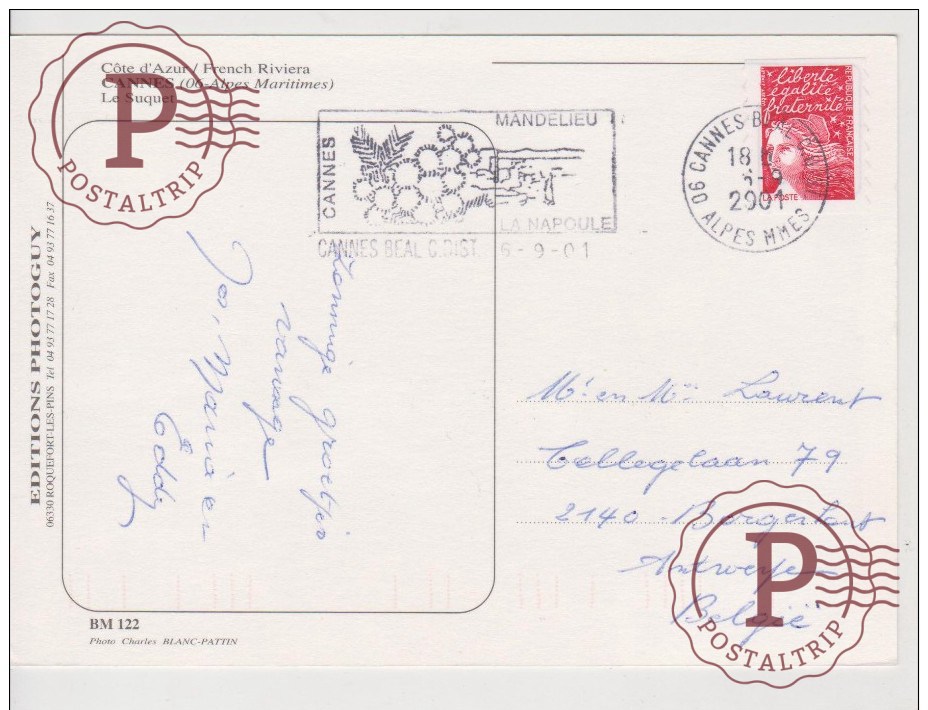 Côte d'Azur / French Riviera
CANNES (06-Alpes Maritimes)
Le Suquet
P
POSTALTRIP
EDITIONS PHOTOGUY
06330 ROQUEFORT-LES-PINS Tel 04 93 77 17 28 Fax 04 93 77 16 37
CANNES
MANDELIEU
LA NAPOULE
CANNES BEAL C.DIST 6-9-01
06 CANNES
18
-9
2001
ALPES MMES
liberté
égalité
fraternité
REPUBLIQUE FRANÇAISE
LA POSTE
Zonnige groetjes
vanwege
Jos, Maria en
Coddy
Mr en Mw Laurent
Collegelaan 79
2140 - Borgerhout
Antwerpen
België
P
POSTALTRIP
BM 122
Photo Charles BLANC-PATTIN